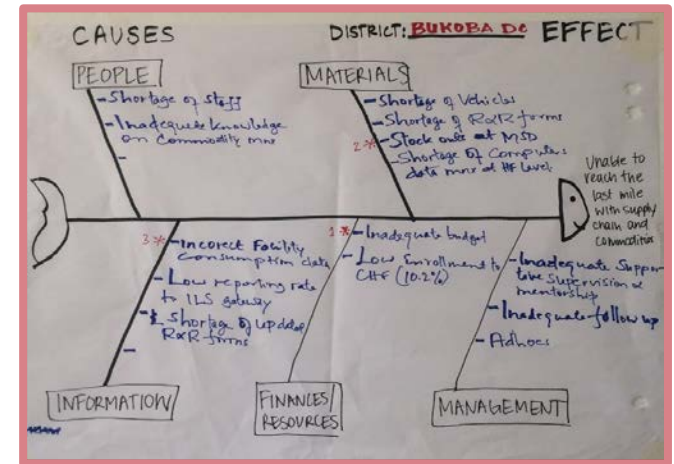 CAUSES
DISTRICT: BUKOBA DC
EFFECT
PEOPLE
- Shortage of Staff
- Inadequate knowledge
on Commodity mnx
-
MATERIALS
- Shortage of Vehicles
- Shortage of R&R forms
2 * - Stock outs at MSD
- Shortage of Computers
data mnx at HF Level
Unable to
reach the
last mile
with supply
chain and
commodities
3 * - Incorect Facility
Consumption data
- Low reporting rate
to ILS gateway
- Shortage of updated
R&R forms
-
1 * - Inadequate budget
- Low Enrollment to
CHF (10.2%)
- Inadequate Suppor-
tive Supervision &
mentorship
- Inadequate follow up
- Adhocs
INFORMATION
FINANCES/
RESOURCES
MANAGEMENT